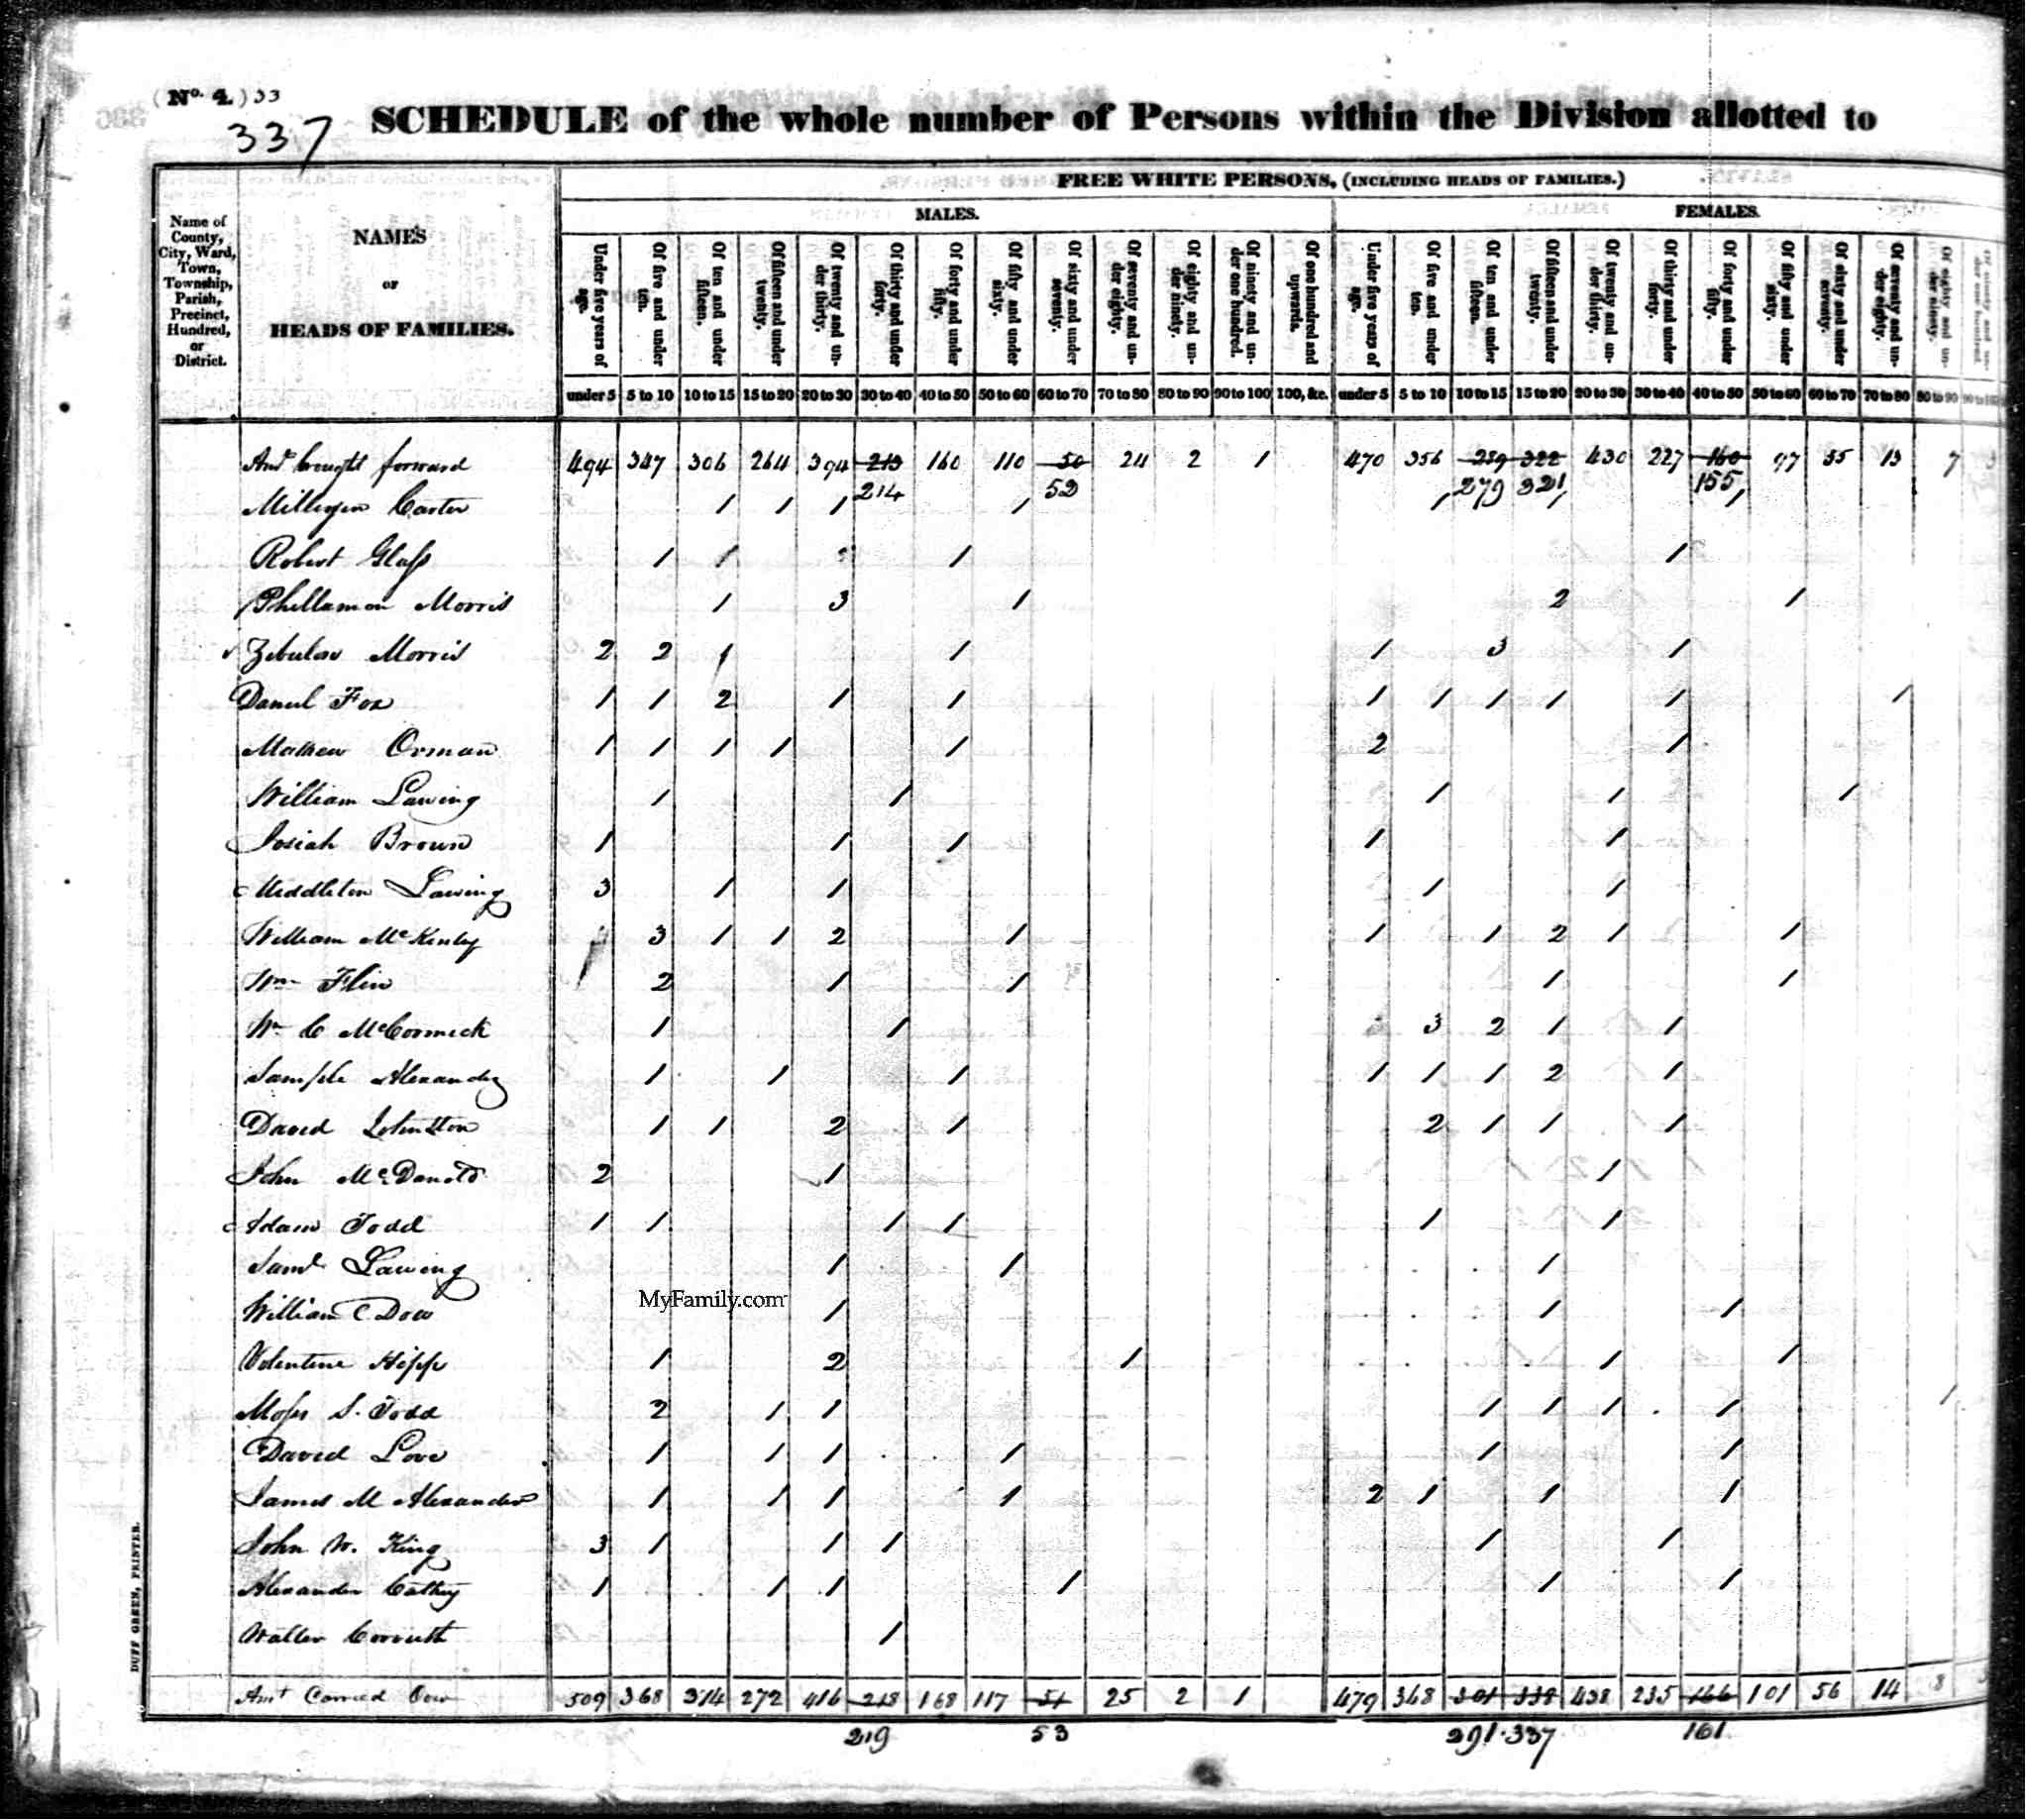 (No. 4.) 33
337
SCHEDULE of the whole number of Persons within the Division allotted to
Name of County, City, Ward, Town, Township, Parish, Precinct, Hundred, or District.
NAMES
OF
HEADS OF FAMILIES.
FREE WHITE PERSONS, (INCLUDING HEADS OF FAMILIES.)
MALES. FEMALES.
Under five years of age. Of five and under ten. Of ten and under fifteen. Of fifteen and under twenty. Of twenty and under thirty. Of thirty and under forty. Of forty and under fifty. Of fifty and under sixty. Of sixty and under seventy. Of seventy and under eighty. Of eighty and under ninety. Of ninety and under one hundred. Of one hundred and upwards. Under five years of age. Of five and under ten. Of ten and under fifteen. Of fifteen and under twenty. Of twenty and under thirty. Of thirty and under forty. Of forty and under fifty. Of fifty and under sixty. Of sixty and under seventy. Of seventy and under eighty. Of eighty and under ninety.
under 5 5 to 10 10 to 15 15 to 20 20 to 30 30 to 40 40 to 50 50 to 60 60 to 70 70 to 80 80 to 90 90 to 100 100, &c. under 5 5 to 10 10 to 15 15 to 20 20 to 30 30 to 40 40 to 50 50 to 60 60 to 70 70 to 80 80 to 90
Amt brought forward 494 347 306 264 394 213 160 110 50 24 2 1 470 356 289 322 430 227 160 97 55 13 7
214 52 279 321 155
Milligen Carter 1 1 1 1 1 1 1
Robert Glass 1 1 1 1
Phillamon Morris 1 3 1 2 1
Zebulon Morris 2 2 1 1 1 3 1
Daniel Fox 1 1 2 1 1 1 1 1 1 1 1
Mathew Orman 1 1 1 1 1 2 1
William Lawing 1 1 1 1 1
Josiah Brown 1 1 1 1 1
Middleton Lawing 3 1 1 1 1
William McKinly 3 1 1 2 1 1 1 2 1 1
Wm Flin 2 1 1 1 1
Wm C McCormick 1 1 3 2 1 1
Sample Alexander 1 1 1 1 1 1 2 1
David Johnston 1 1 2 1 2 1 1 1
John McDonald 2 1 1
Adam Todd 1 1 1 1 1 1
Saml Lawing 1 1 1
MyFamily.com
William C Dow 1 1 1
Valentine Hipp 1 2 1 1 1
Moses S. Todd 2 1 1 1 1 1 1 1
David Love 1 1 1 1 1 1
James M Alexander 1 1 1 1 2 1 1 1
John W. King 3 1 1 1 1 1
Alexander Cathey 1 1 1 1 1 1
Walter Corruth 1
Amt Carried Over 509 368 314 272 416 218 168 117 51 25 2 1 479 368 301 338 438 235 166 101 56 14 8
219 53 291 337 161
DUFF GREEN, PRINTER.